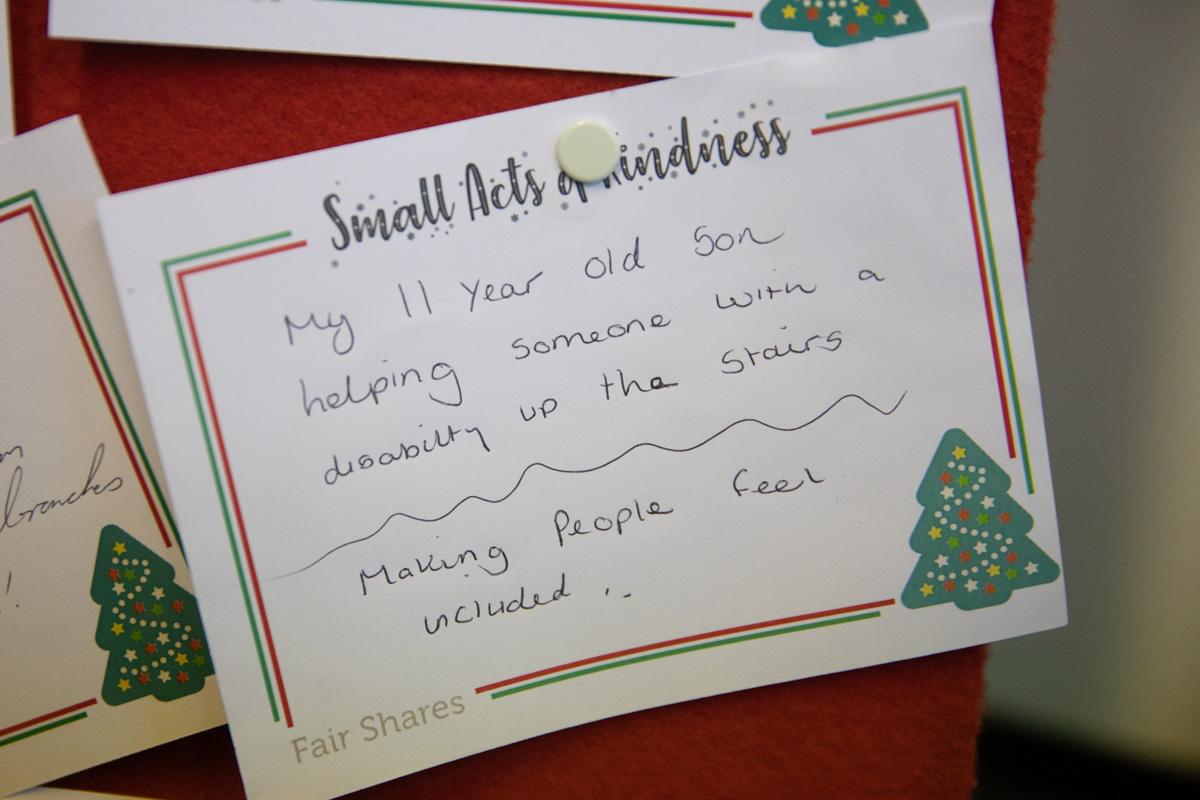 Small Acts of Kindness
My 11 year old son
helping someone with a
disabilty up the stairs
Making People feel
included
Fair Shares
branches
!